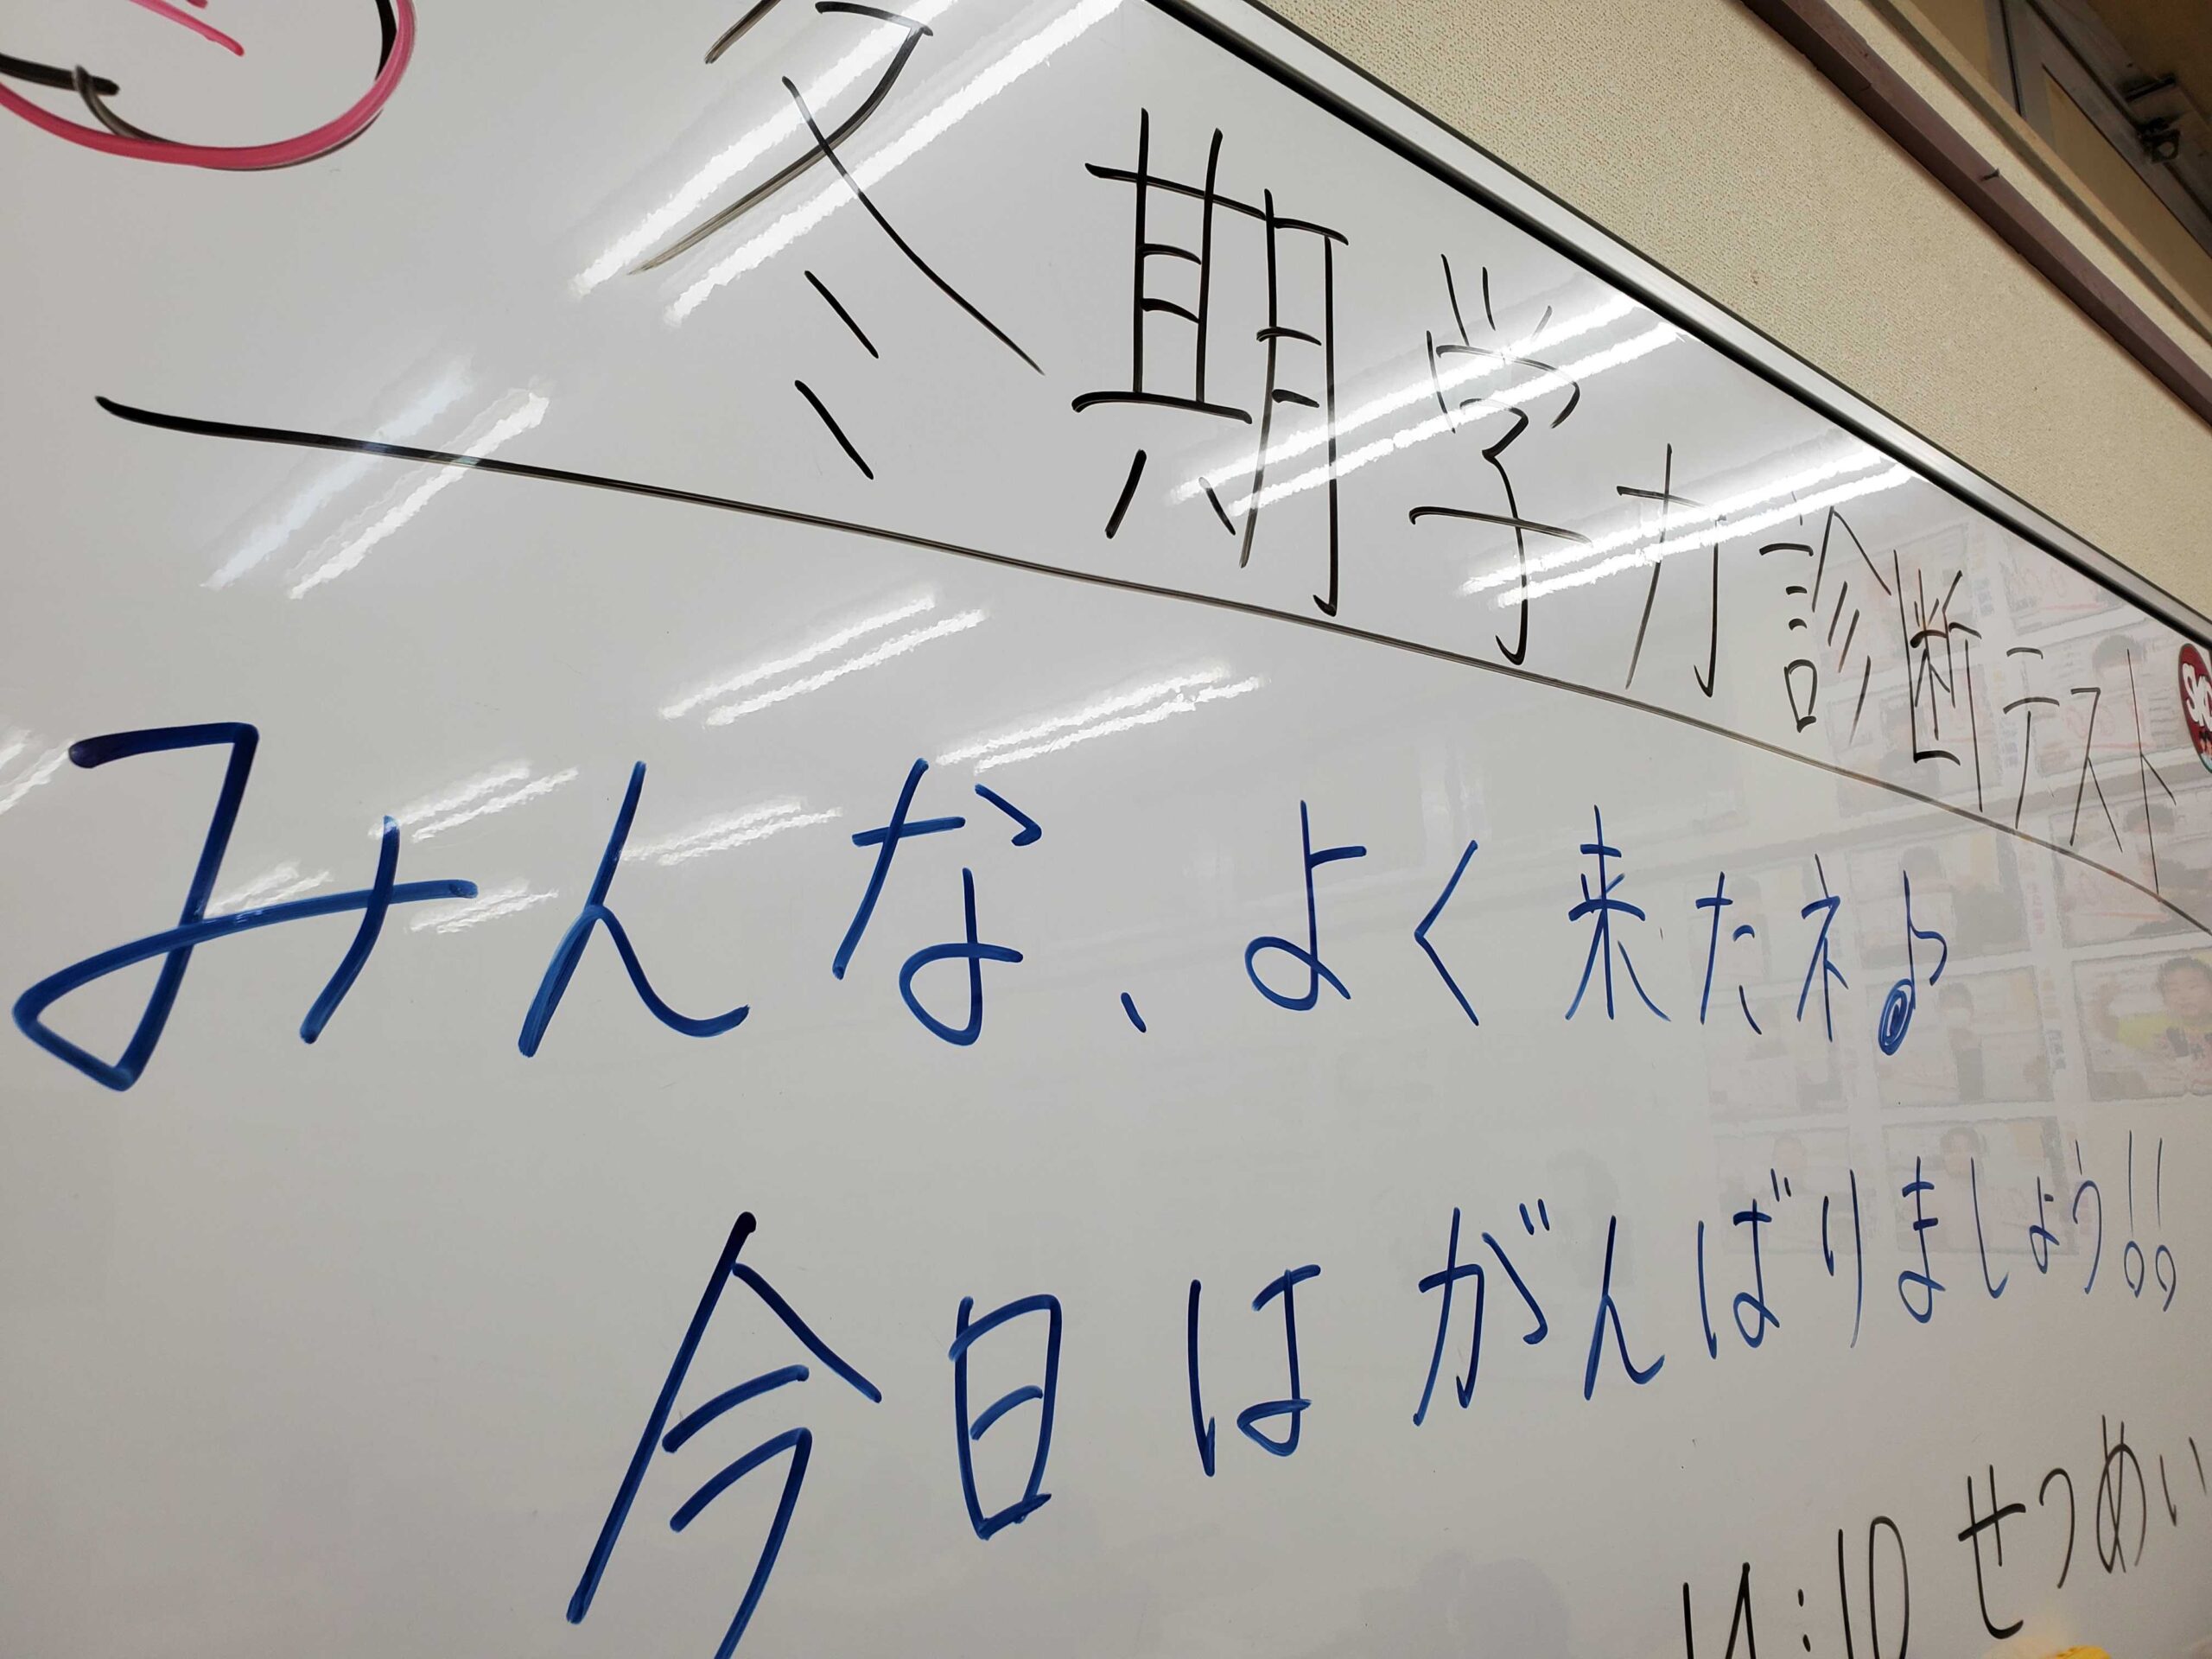 冬期学力診断テスト
みんな、よく来たネ♪
今日はがんばりましょう!!
せつめい